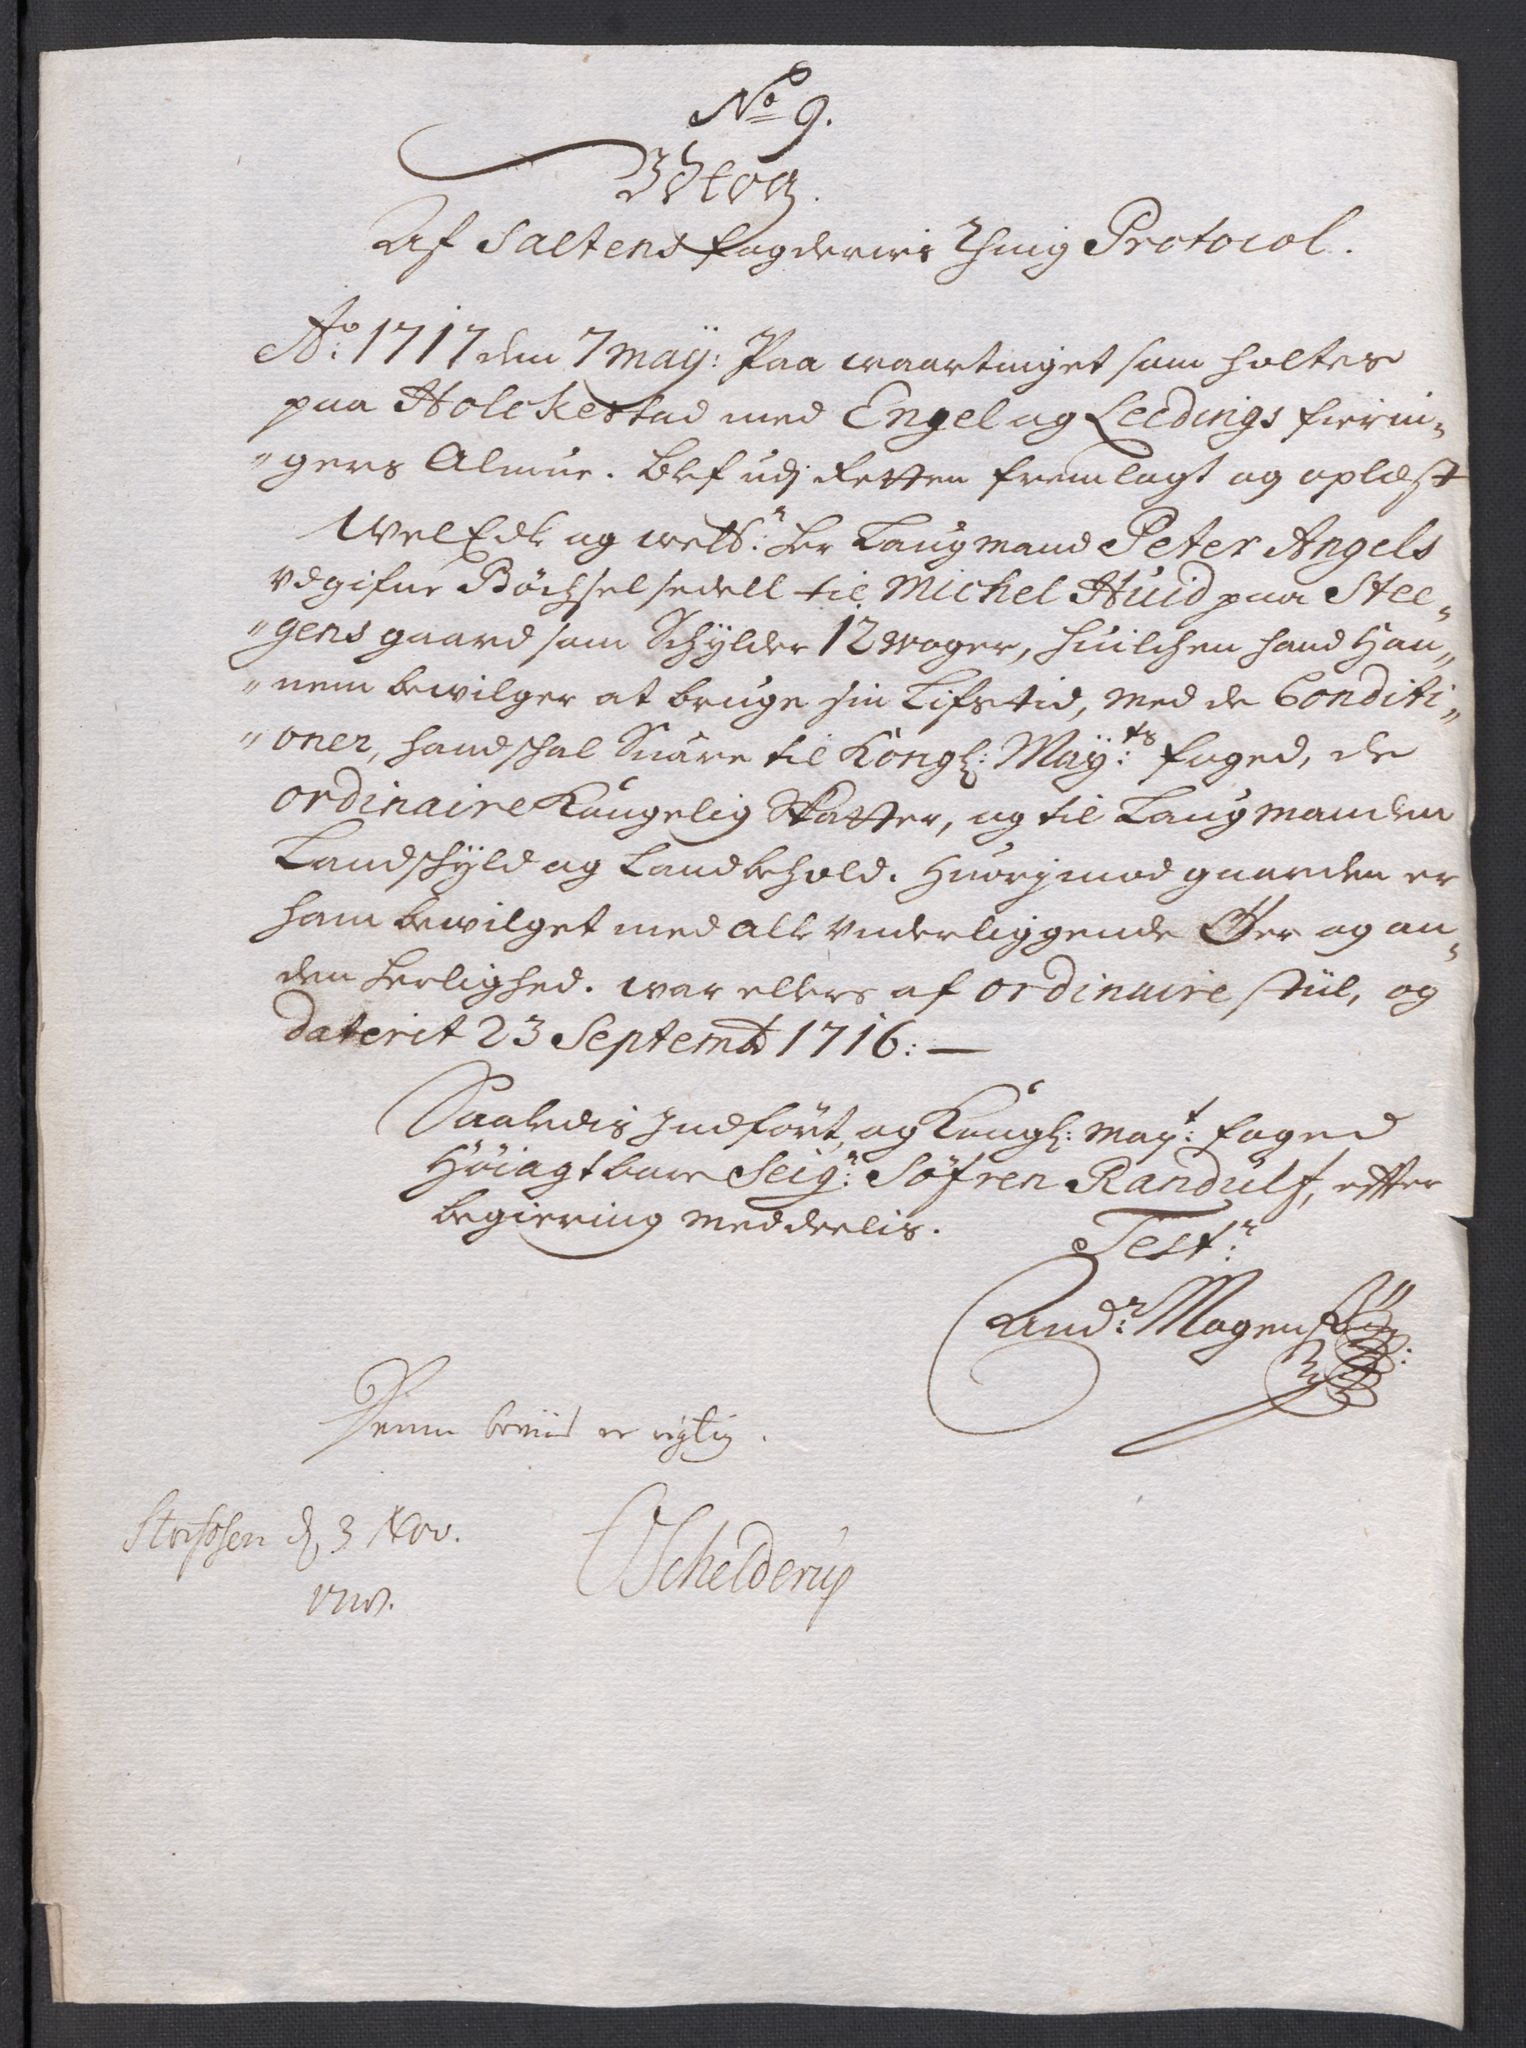 No 9.
Udtog
Af Saltens fogderies Thing Protocol.
Ao: 1717 den 7 maÿ: Paa waartinget som holtes
paa Holckestad med Engel og Leedings fierin„
„gers Almue. blef udj Retten fremlagt og oplæst
WelEdle og welb:r Hr Laugmand Peter Angels
vdgifne Böchselsedell til Michel Huid paa Stee„
„gens gaard som Schÿlder 12 woger, huilchen hand Han„
„nem bewilger at bruge sin Lifs tid, med de Conditi„
„oner, hand schal Suare til Kongl: Maÿ:ts foged, de
ordinaire Kongelig Skatter, og til Laugmanden
Landschÿld og Landbehold. Huorjmod gaarden er
ham bewilget med alle vnderliggende Öer og an„
den herlighed. war ellers af ordinaire stiil, og
daterit 23 Septemb 1716: —
Saaledis Indfört, og Kongl: may:t foged
Höiagtbare Seig:r Söfren Randulf, effter
begiering meddeelis.
Test:r
And:r Mogens
Denne beviis er rigtig.
d 3 Nov.
Schelderup